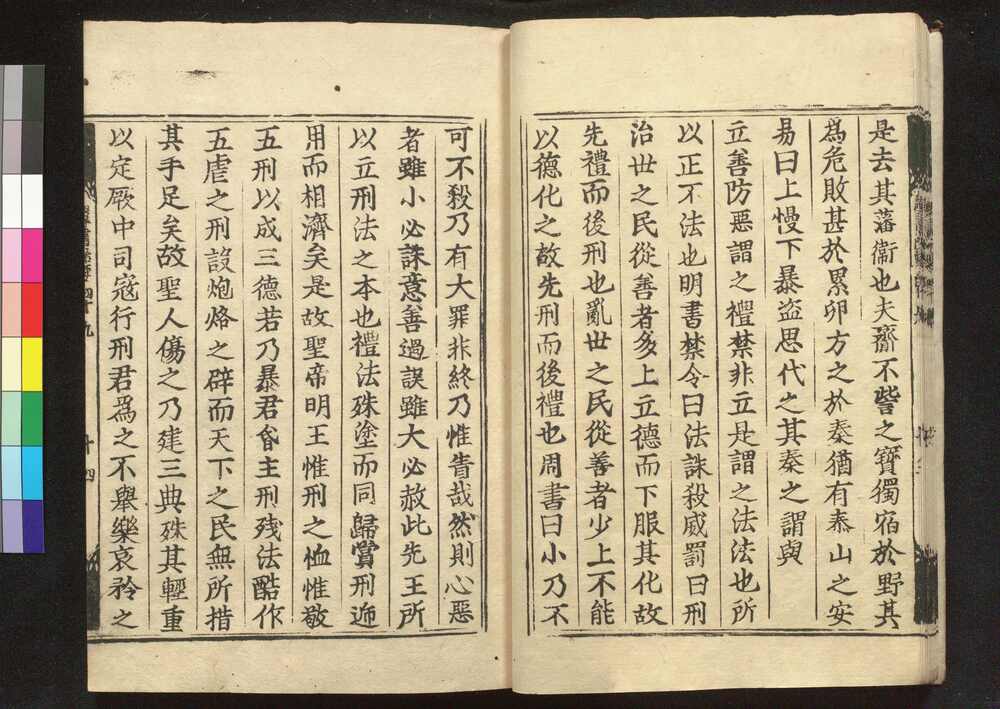 是去其藩衞也夫齎不訾之寶獨宿於野其
爲危敗甚於累卵方之於秦猶有泰山之安
易曰上慢下暴盜思伐之其秦之謂與
立善防惡謂之禮禁非立是謂之法法也所
以正不法也明書禁令曰法誅殺威罰曰刑
治世之民從善者多上立德而下服其化故
先禮而後刑也亂世之民從善者少上不能
以德化之故先刑而後禮也周書曰小乃不
可不殺乃有大罪非終乃惟眚哉然則心惡
者雖小必誅意善過誤雖大必赦此先王所
以立刑法之本也禮法殊塗而同歸賞刑逓
用而相濟矣是故聖帝明王惟刑之恤惟敬
五刑以成三德若乃暴君昏主刑残法酷作
五虐之刑設炮烙之辟而天下之民無所措
其手足矣故聖人傷之乃建三典殊其輕重
以定厥中司寇行刑君爲之不舉樂哀矜之
四十九
十四